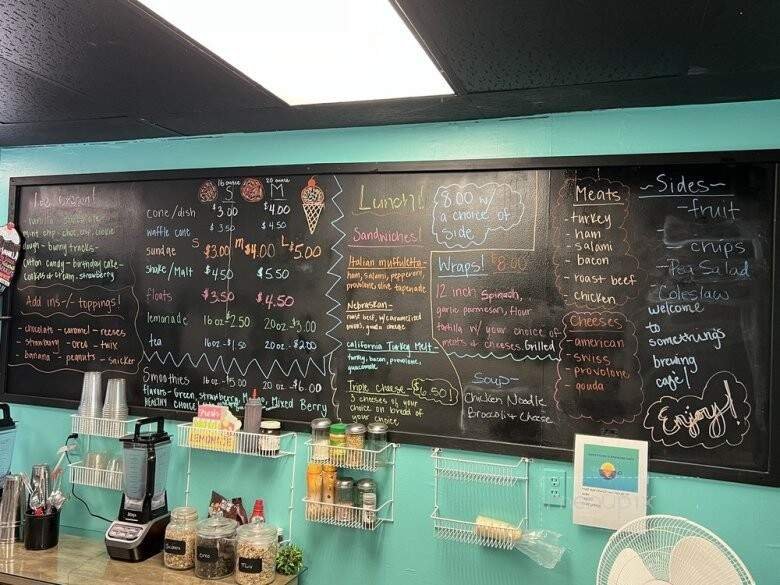 Ice Cream!
vanilla - chocolate -
mint chip - choc. chip, cookie
dough - bunny tracks -
cotton candy - birthday cake -
cookies & cream, strawberry
Add ins-/toppings!
- chocolate - caramel - reeses
- strawberry - oreo - twix
- banana - peanuts - snicker
16 ounce 20 ounce
S M
cone/dish $3.00 $4.00
waffle cone $3.50 $4.50
sundae S $3.00 M $4.00 L $5.00
shake/Malt $4.50 $5.50
floats $3.50 $4.50
lemonade 16oz-2.50 20oz-$3.00
tea 16oz-$1.50 20oz-$2.00
Smoothies 16oz-$5.00 20oz-$6.00
Flavors- Green, strawberry, Mixed Berry
HEALTHY CHOICE
Lunch!
8.00 w/
a choice of
side
Sandwiches!
Italian muffuletta-
ham, salami, pepperoni,
provolone, olive tapenade
Nebraskan-
roast beef, w/caramelized
onions, gouda cheese
California Turkey Melt
turkey, bacon, provolone,
guacamole
Triple cheese- $6.50!
3 cheeses of your
choice on bread of
your choice
Wraps! $8.00
12 inch Spinach,
garlic parmesan, flour
tortilla w/ your choice of
meats & cheeses. Grilled
Soup-
Chicken Noodle
Broccoli & Cheese
Meats
- turkey
- ham
- salami
- bacon
- roast beef
- chicken
Cheeses
- american
- swiss
- provolone
- gouda
~Sides~
- fruit
- crups
- Pea Salad
- Coleslaw
welcome
to
somethings
brewing
cafe!
Enjoy!
Fresh
LEMONADE
Ninja
Oreo
Twix